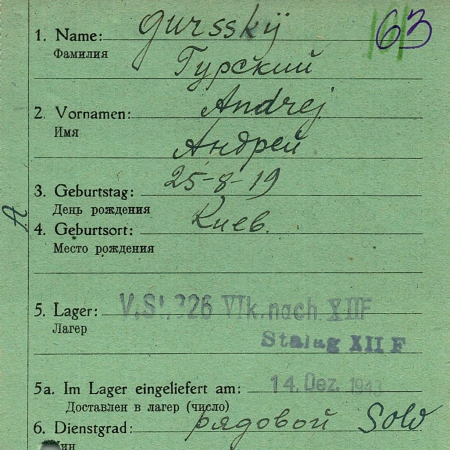 63
1. Name: Gursskÿ
Фамилия Гурский
2. Vornamen: Andrej
Имя Андрей
3. Geburtstag: 25-8-19
День рождения
4. Geburtsort: Киев.
Место рождения
A
5. Lager: V.St. 326 VIk. nach XIIF
Лагер
Stalag XII F
5a. Im Lager eingeliefert am: 14. Dez. 1943
Доставлен в лагер (число)
6. Dienstgrad: рядовой Sold